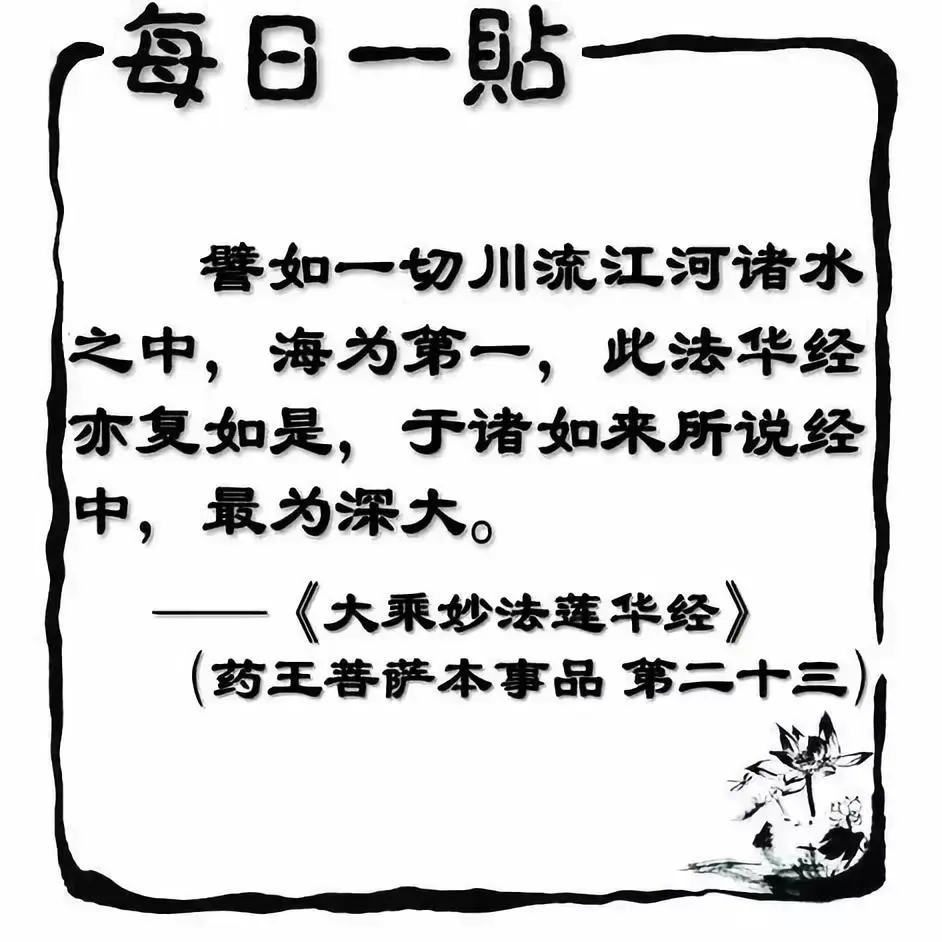 每日一貼
譬如一切川流江河诸水
之中，海为第一，此法华经
亦复如是，于诸如来所说经
中，最为深大。
——《大乘妙法莲华经》
（药王菩萨本事品 第二十三）